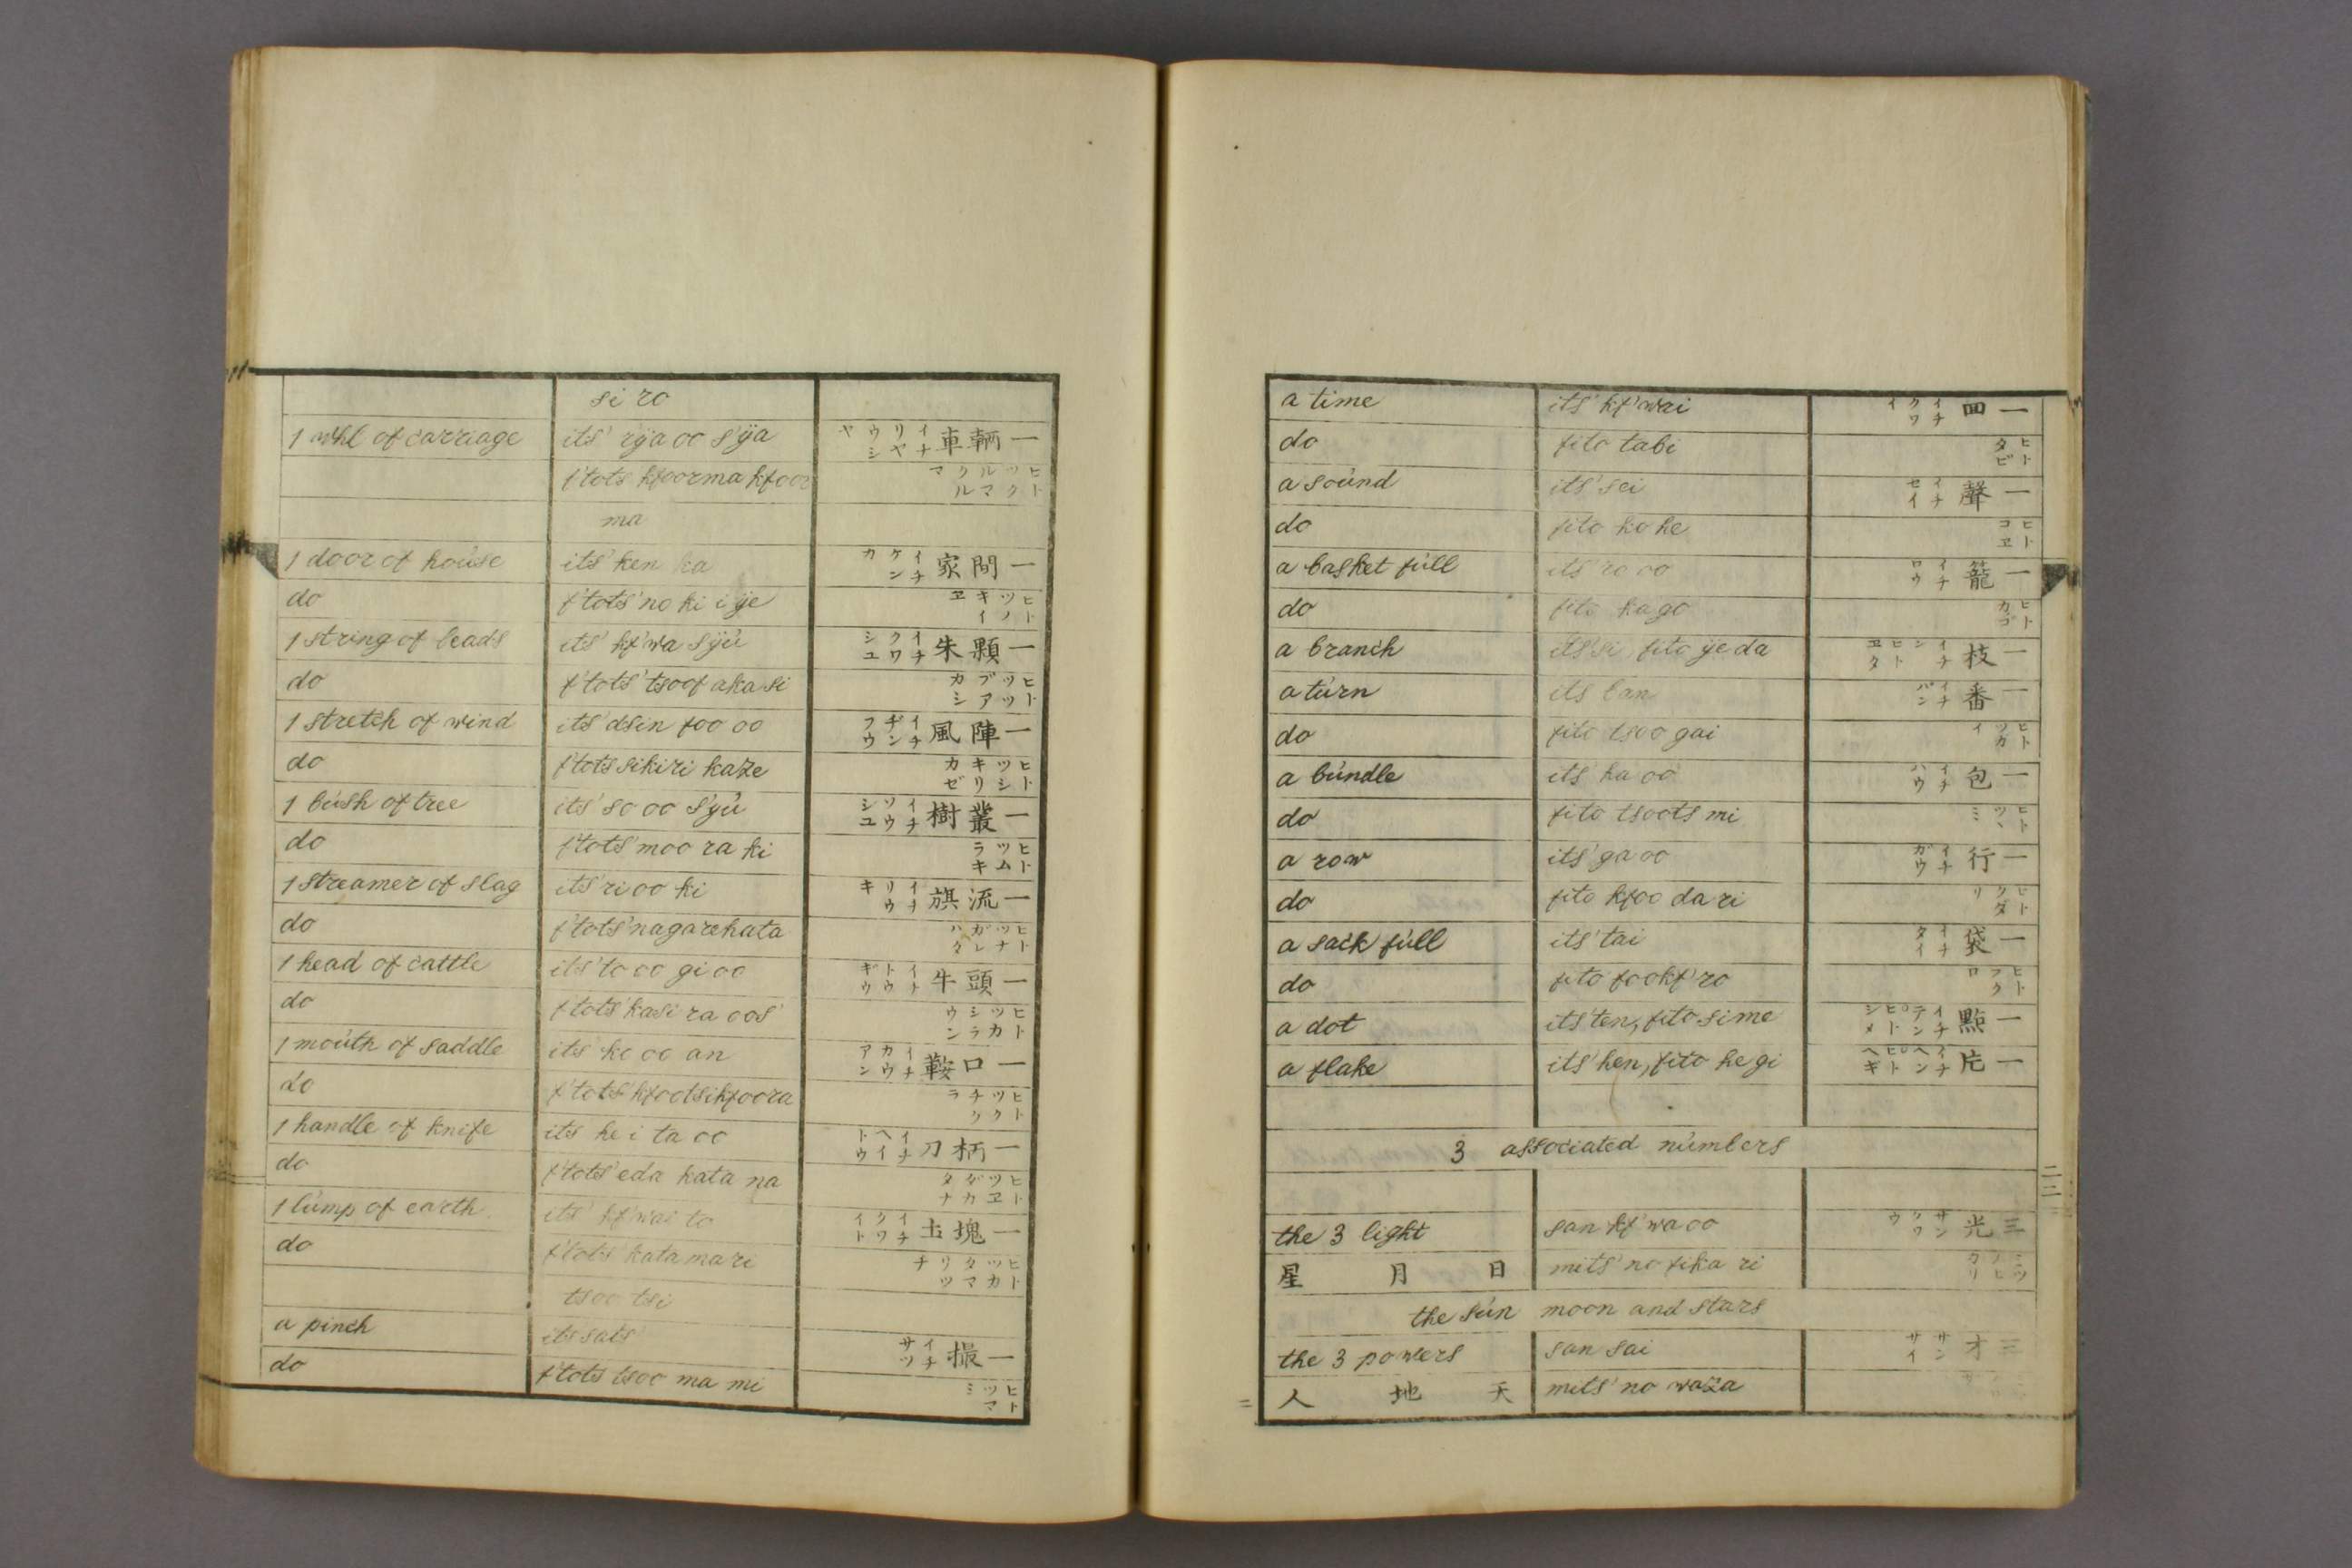 si ro
1 whl of carriage its' rÿa oo s'ÿa 一輌車 イチリヤウシヤ
f'tots kfoorma kfoor ヒトツルクマクル
ma
1 door of house its' ken ka 一間家 イチケンカ
do f'tots' no ki i ÿe ヒトツノキイヱ
1 string of beads its' kf'wa sÿu 一顆朱 イチクワシユ
do f'tots' tsoof akasi ヒトツツブアカシ
1 stretch of wind its' dsin foo oo 一陣風 イチヂンフウ
do f'tots sikiri kaze ヒトツシキリカゼ
1 bush of tree its' so oo s'ÿu 一叢樹 イチソウシユ
do f'tots' moo ra ki ヒトツムラキ
1 streamer of slag its' ri oo ki 一流旗 イチリウキ
do f'tots' nagarehata ヒトツナガレハタ
1 head of cattle its' to oo gi oo 一頭牛 イチトウギウ
do f'tots' kasi ra oos' ヒトツカシラウシ
1 mouth of saddle its' ko oo an 一口鞍 イチカウアン
do f'tots' kfootsikfoora ヒトツクチクラ
1 handle of knife its he i ta oo 一柄刀 イチヘイトウ
do f'tots' eda kata na ヒトツヱダカタナ
1 lump of earth its' kf'wai to 一塊土 イチクワイト
do f'tots' kata ma ri ヒトツカタマリツチ
tsoo tsi
a pinch its sats' 一撮 イチサツ
do f'tots tsoo ma mi ヒトツマミ
a time its' kf'wai 一回 イチクワイ
do fito tabi ヒトタビ
a sound its' sei 一聲 イチセイ
do fito ko he ヒトコヱ
a basket full its' ro oo 一籠 イチロウ
do fito ka go ヒトカゴ
a branch its'si, fito ÿe da 一枝 イチシヒトヱタ
a turn its ban 一番 イチバン
do fito tsoo gai ヒトツガイ
a bundle its' ha oo 一包 イチハウ
do fito tsoots mi ヒトツヽミ
a row its' ga oo 一行 イチガウ
do fito kfoo da ri ヒトクダリ
a sack full its' tai 一袋 イチタイ
do fito fookf'ro ヒトフクロ
a dot its' ten, fito sime 一點 イチテンヒトシメ
a flake its' hen, fito he gi 一片 イチヘンヒトヘギ
3 associated numbers
the 3 light san kf'wa oo 三光 サンクワウ
日 月 星 mits' no fika ri ミツノヒカリ
the sun moon and stars
the 3 powers san sai 三才 サンサイ
天 地 人 mits' no waza
二